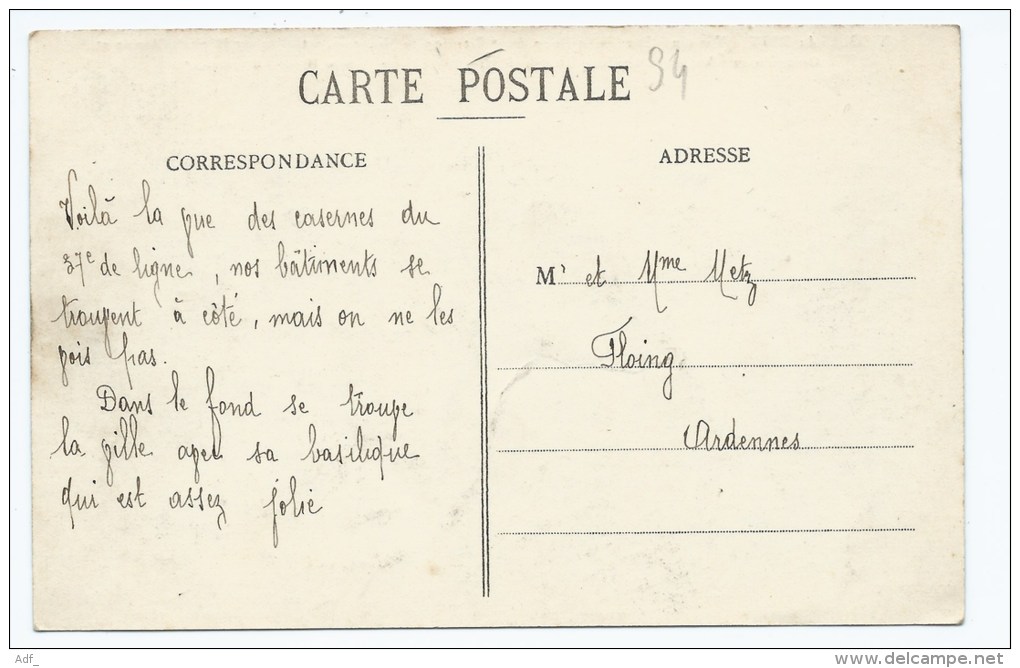 CARTE POSTALE 54
CORRESPONDANCE
Voilà la vue des casernes du
37e de ligne, nos bâtiments se
trouvent à côté, mais on ne les
vois pas.
Dans le fond se trouve
la ville avec sa basilique
qui est assez jolie
ADRESSE
Mr et Mme Metz
Floing
Ardennes
Adf_
www.delcampe.net